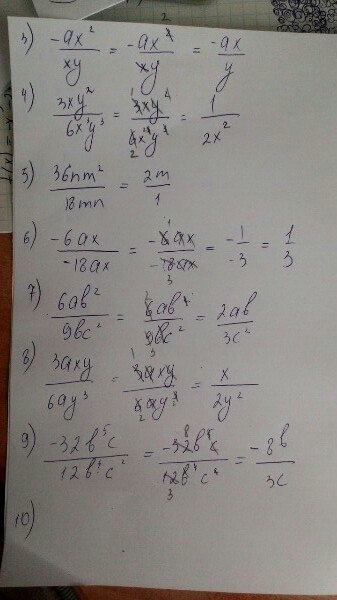 3) -ax²/xy = -ax²/xy = -ax/y
4) 3xy²/6x³y³ = 3xy²/6x³y³ = 1/2x²
5) 36nm²/18mn = 2m/1
6) -6ax/-18ax = -6ax/-18ax = -1/-3 = 1/3
7) 6ab²/9bc² = 6ab²/9bc² = 2ab/3c²
8) 3axy/6ay³ = 3axy/6ay³ = x/2y²
9) -32b⁵c/12b⁴c² = -32b⁵c/12b⁴c² = -8b/3c
10)